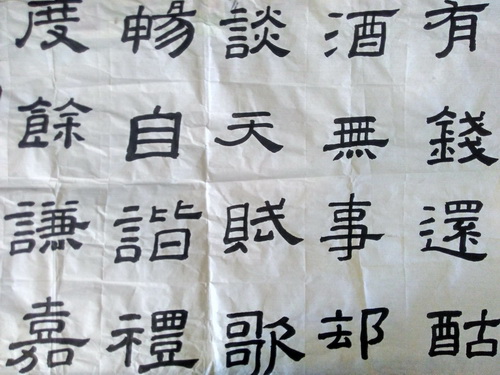 有錢還酤
酒無事却
談天賦歌
暢自諧禮
度餘謙嘉